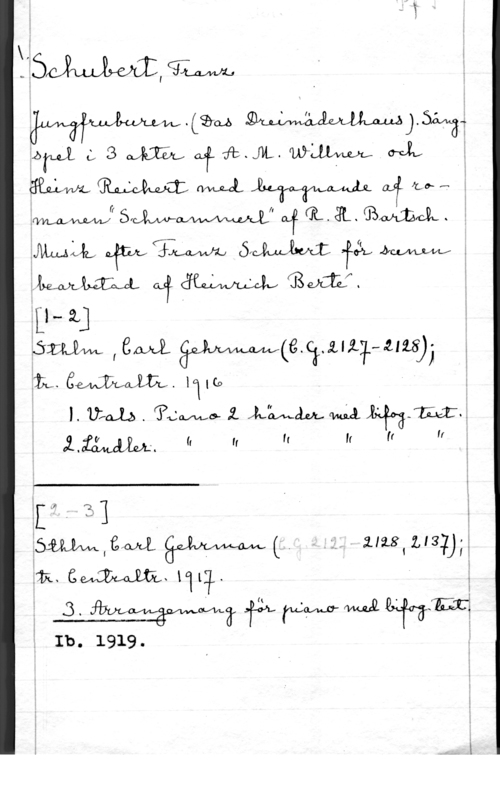 Schubert, Franz
Jungfruburen. (Das Dreimäderlhaus). Sång-
spel i 3 akter af A. M. Willner och
Heinz Reichert med begagnande af ro-
manen "Schwammerl" af R. H. Bartsch.
Musik efter Franz Schubert för scenen
bearbetad af Heinrich Berté.
[1-2]
Sthlm, Carl Gehrman (C.G. 2127-2128);
tr. Centraltr. 1916
1. Vals. Piano 2 händer med bifog. text.
2. Ländler. " " " " " "
[2-3]
Sthlm, Carl Gehrman (C.G. 2127-2128, 2137);
tr. Centraltr. 1917.
3. Arrangemang för piano med bifog. text.
Ib. 1919.